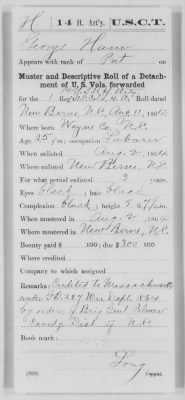 H 14 H. Art'y. U.S.C.T.
George Ham
Appears with rank of Pvt on
Muster and Descriptive Roll of a Detach-
ment of U. S. Vols. forwarded
for the 1 Reg't N.C. Col. H.A. Roll dated
New Berne, N.C. Aug 11, 1864.
Where born Wayne Co. N.C.
Age 25 y'rs; occupation Laborer
When enlisted Aug. 2, 1864.
Where enlisted New Berne, N.C.
For what period enlisted 3 years.
Eyes black; hair black
Complexion black; height 5 ft. 7 in.
When mustered in Aug. 2, 1864.
Where mustered in New Berne, N.C.
Bounty paid $ 100; due $300 100
Where credited
Company to which assigned
Remarks: Credited to Massachusetts
under G.O. 227 War Dept. 1864
by order of Brig Genl Palmer
Comdg Dist of N.C.
Book mark:
Long
(339) Copyist.